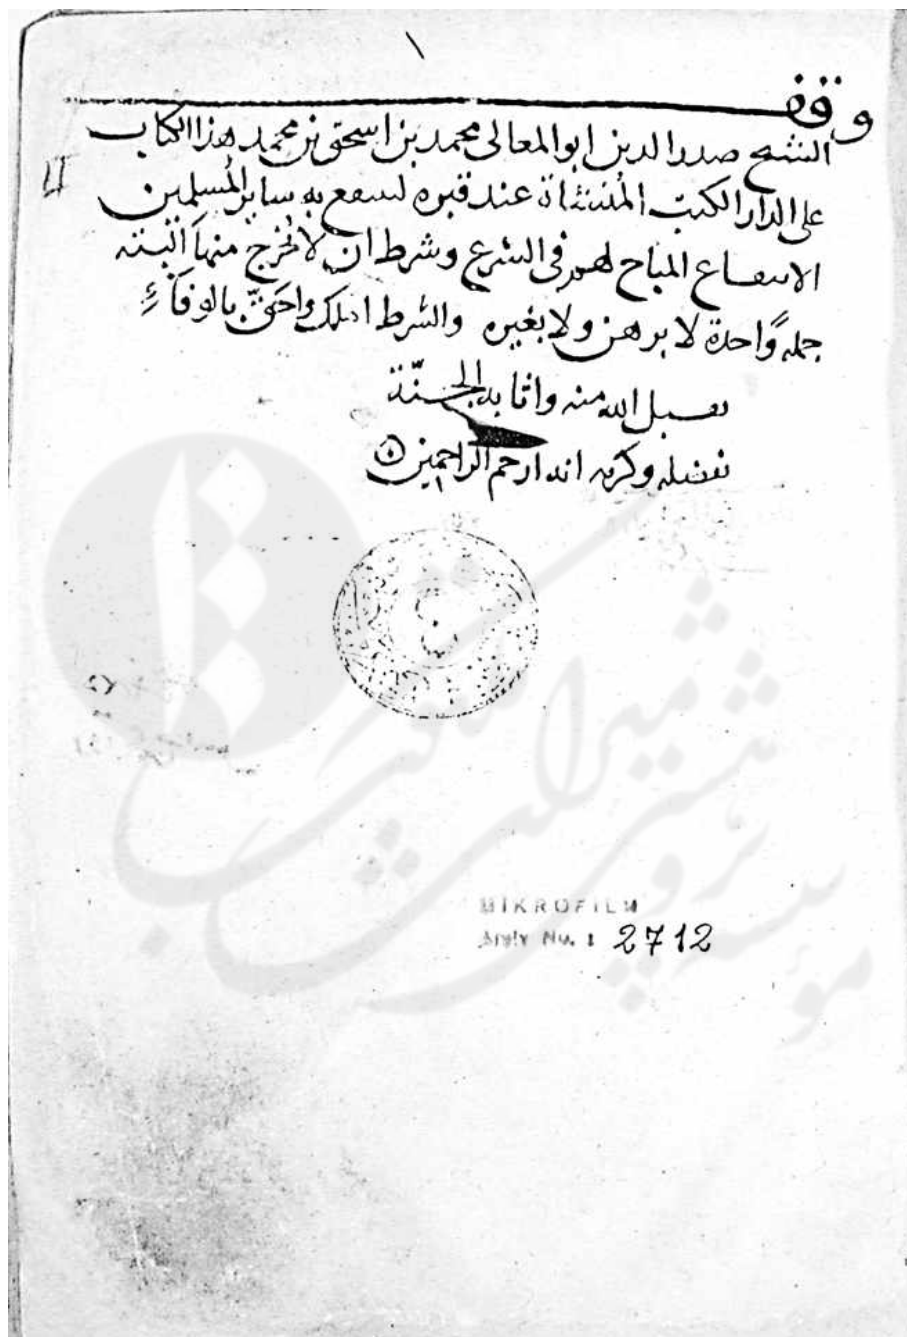 ١
وقف
الشيخ صدر الدين ابو المعالى محمد بن اسحق بن محمد هذا الكتاب
على الدار الكتب المنشاة عند قبره لينتفع به ساير المسلمين
الانتفاع المباح لهم فى الشرع وشرط ان لا تخرج منها البته
جملة واحدة لا برهن ولا بغيره والشرط املك واحق بالوفاء
تقبل الله منه واثابه الجنة
بفضله وكرمه انه ارحم الراحمين
MIKROFILM
Arşiv No. : 2712
مؤسسه پژوهشی میراث مکتوب